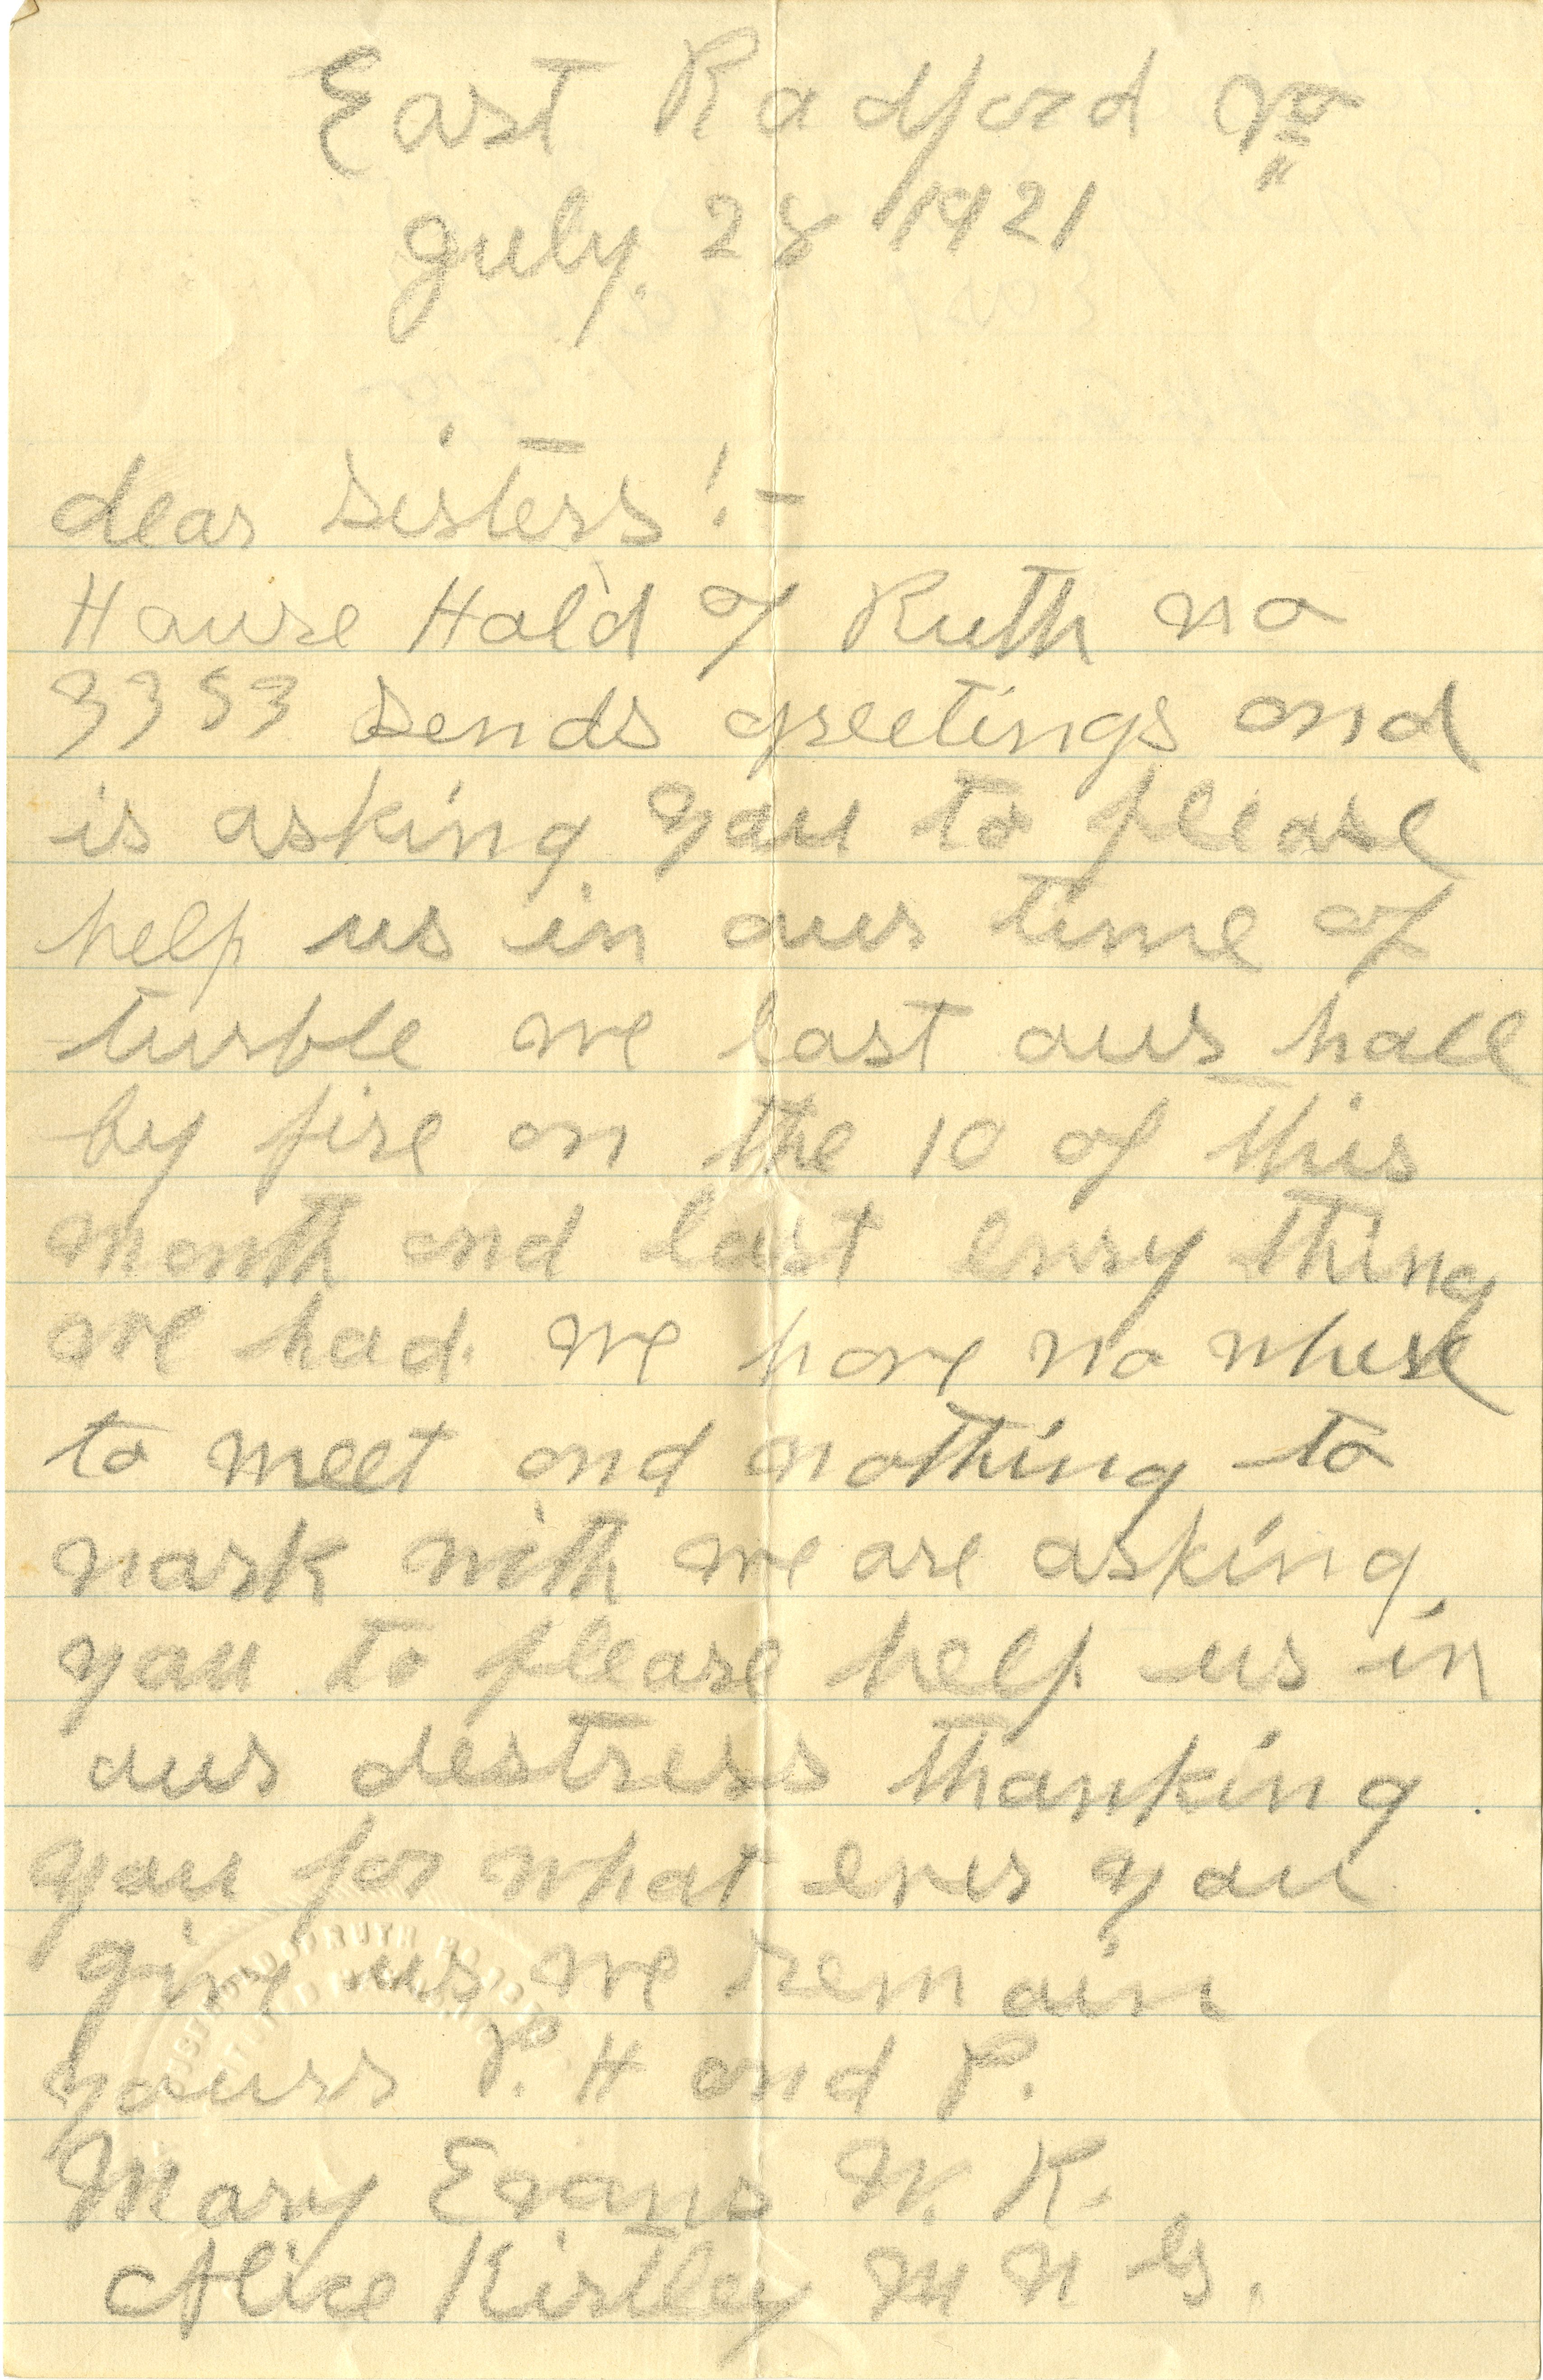 East Radford Va
July. 28 1921
dear sisters!-
House Hold of Ruth no
3353 sends greetings and
is asking you to please
help us in our time of
turble we lost our hall
by fire on the 10 of this
month and lost envy thing
we had. we have no where
to meet and nothing to
work with we are asking
you to please help us in
our destress thanking
you for what ever you
give us we remain
yours P. H and P.
Mary Evans W. R.
Alice Kirtley M N G.